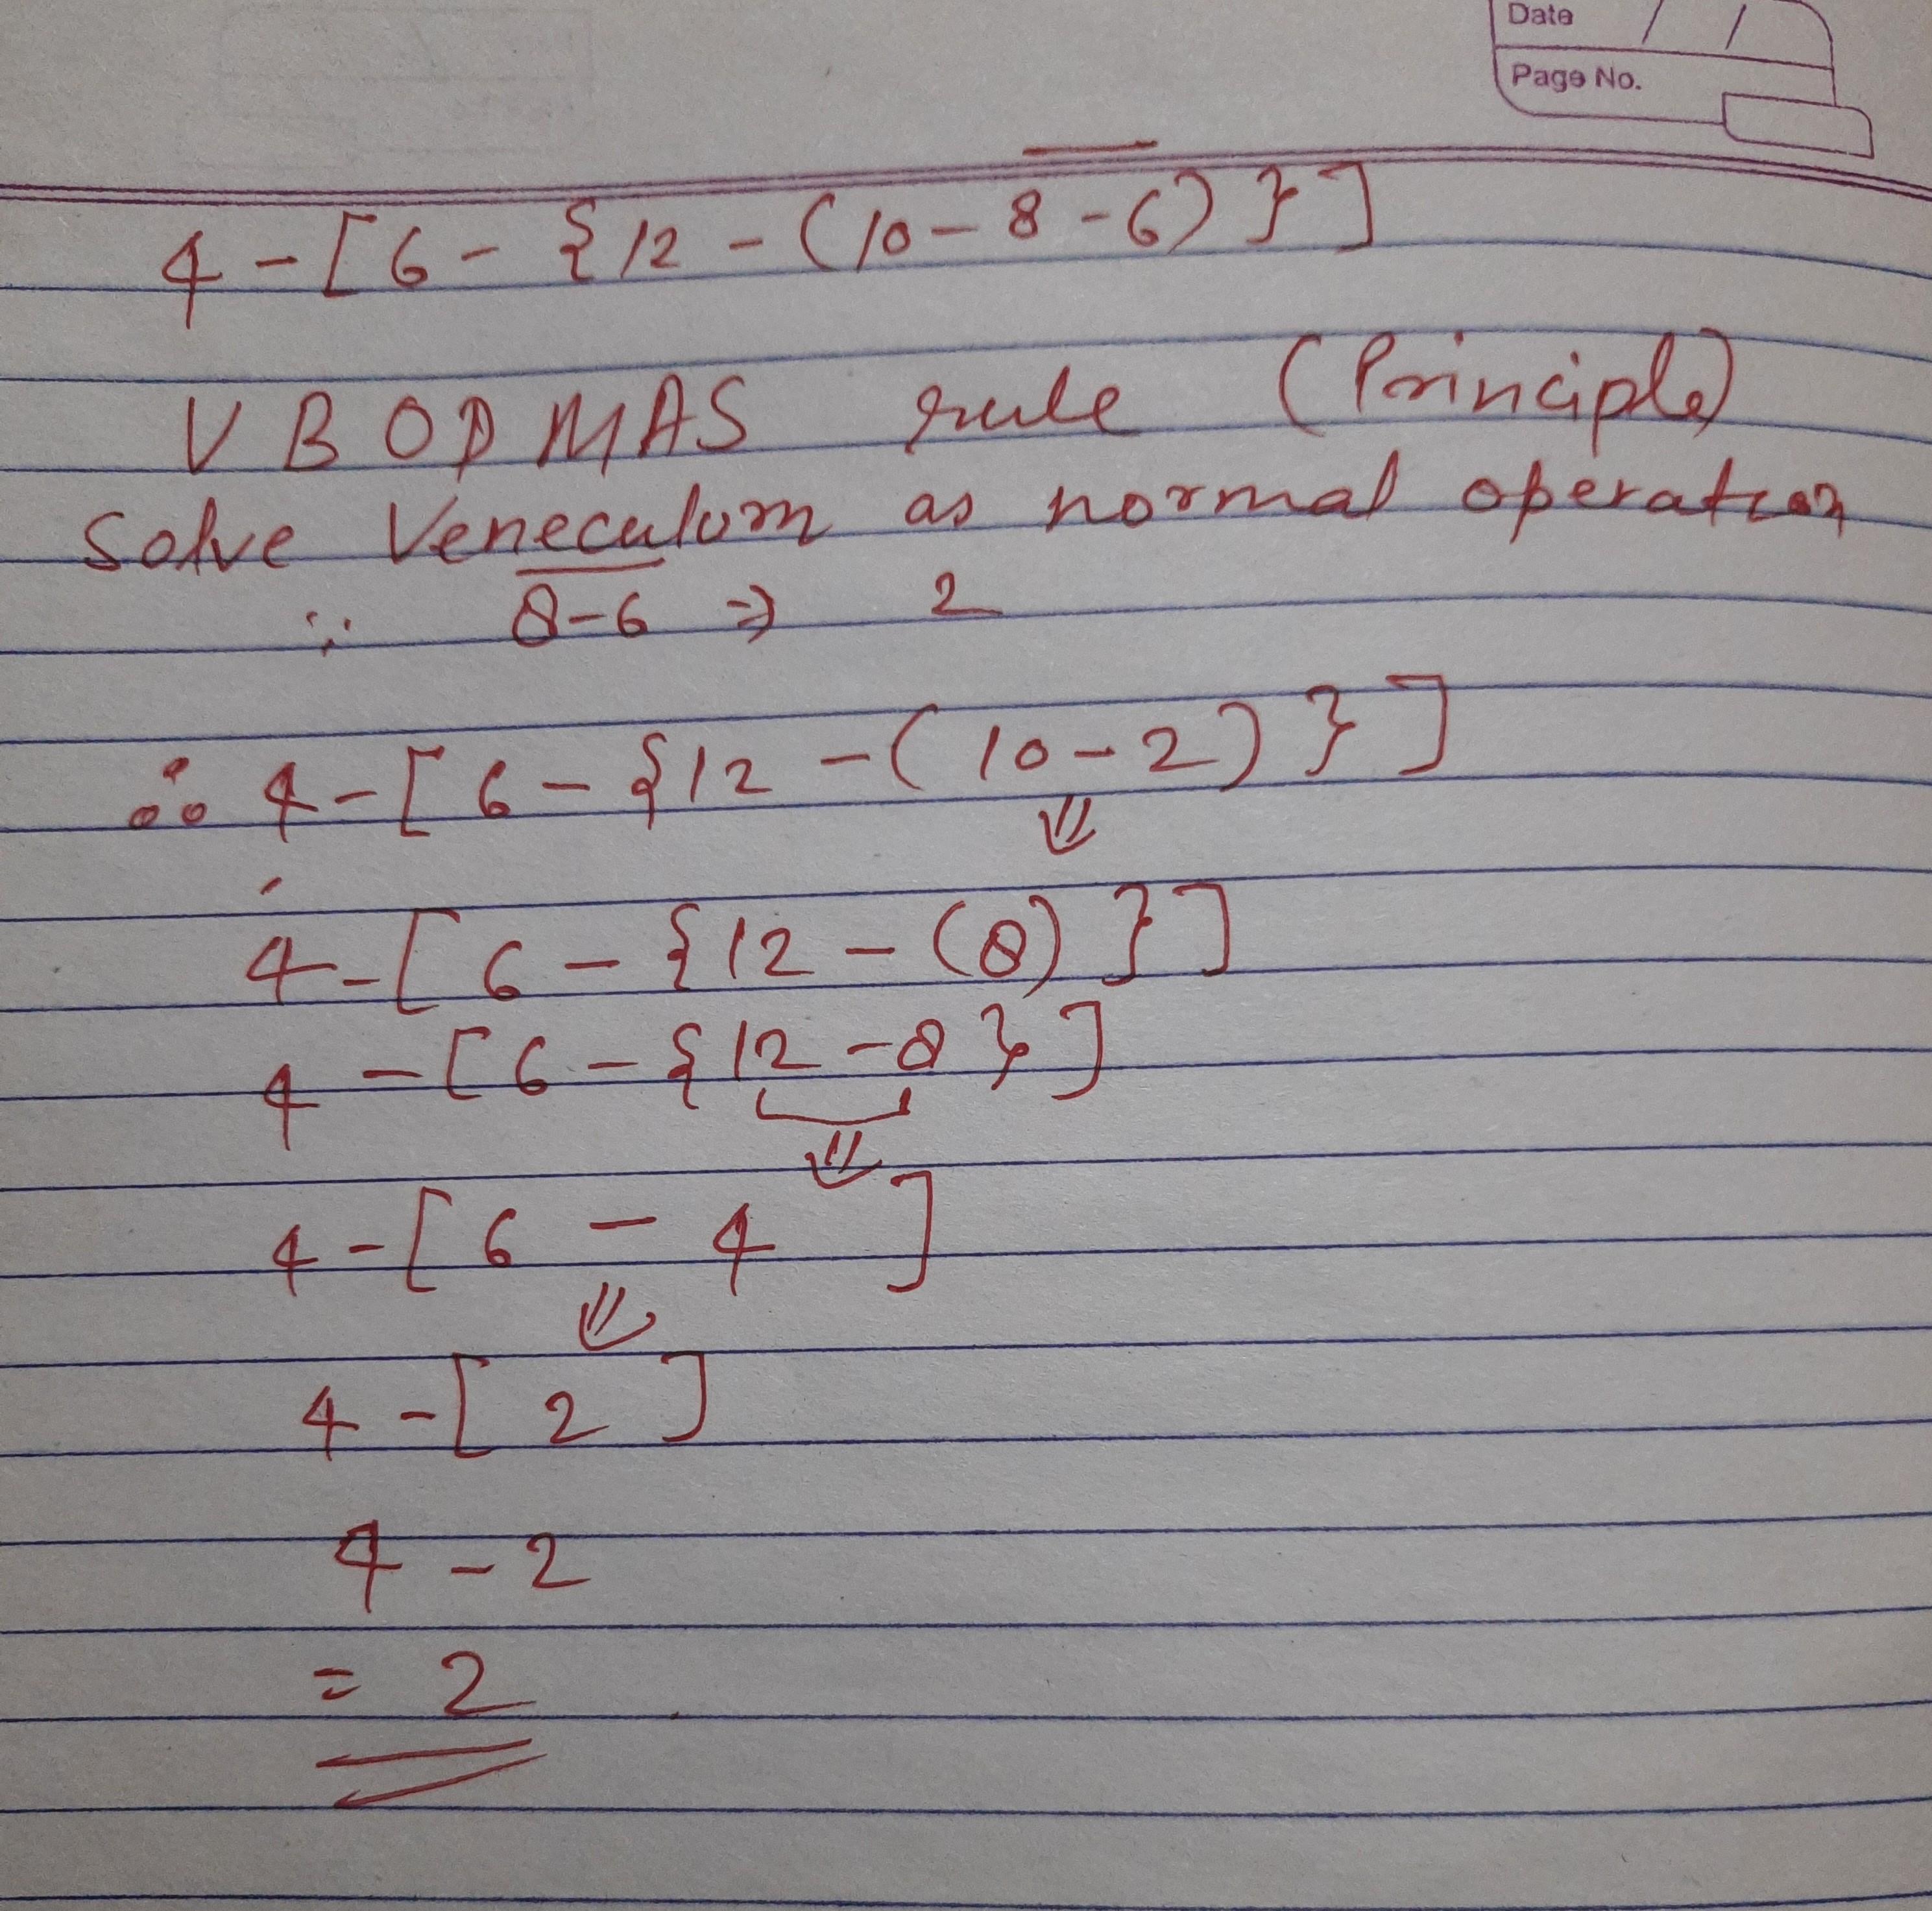 Date / /
Page No.
4 - [6 - {12 - (10 - 8̅ ̅-̅ ̅6̅) } ]
VBODMAS rule (Principle)
Solve Veneculum as normal operation
∵ 8̅-̅6̅ ⇒ 2
∴ 4 - [6 - {12 - (10 - 2) } ]
⇓
4 - [6 - {12 - (8) } ]
4 - [6 - {12 - 8 } ]
⇓
4 - [6 - 4 ]
⇓
4 - [2]
4 - 2
= 2